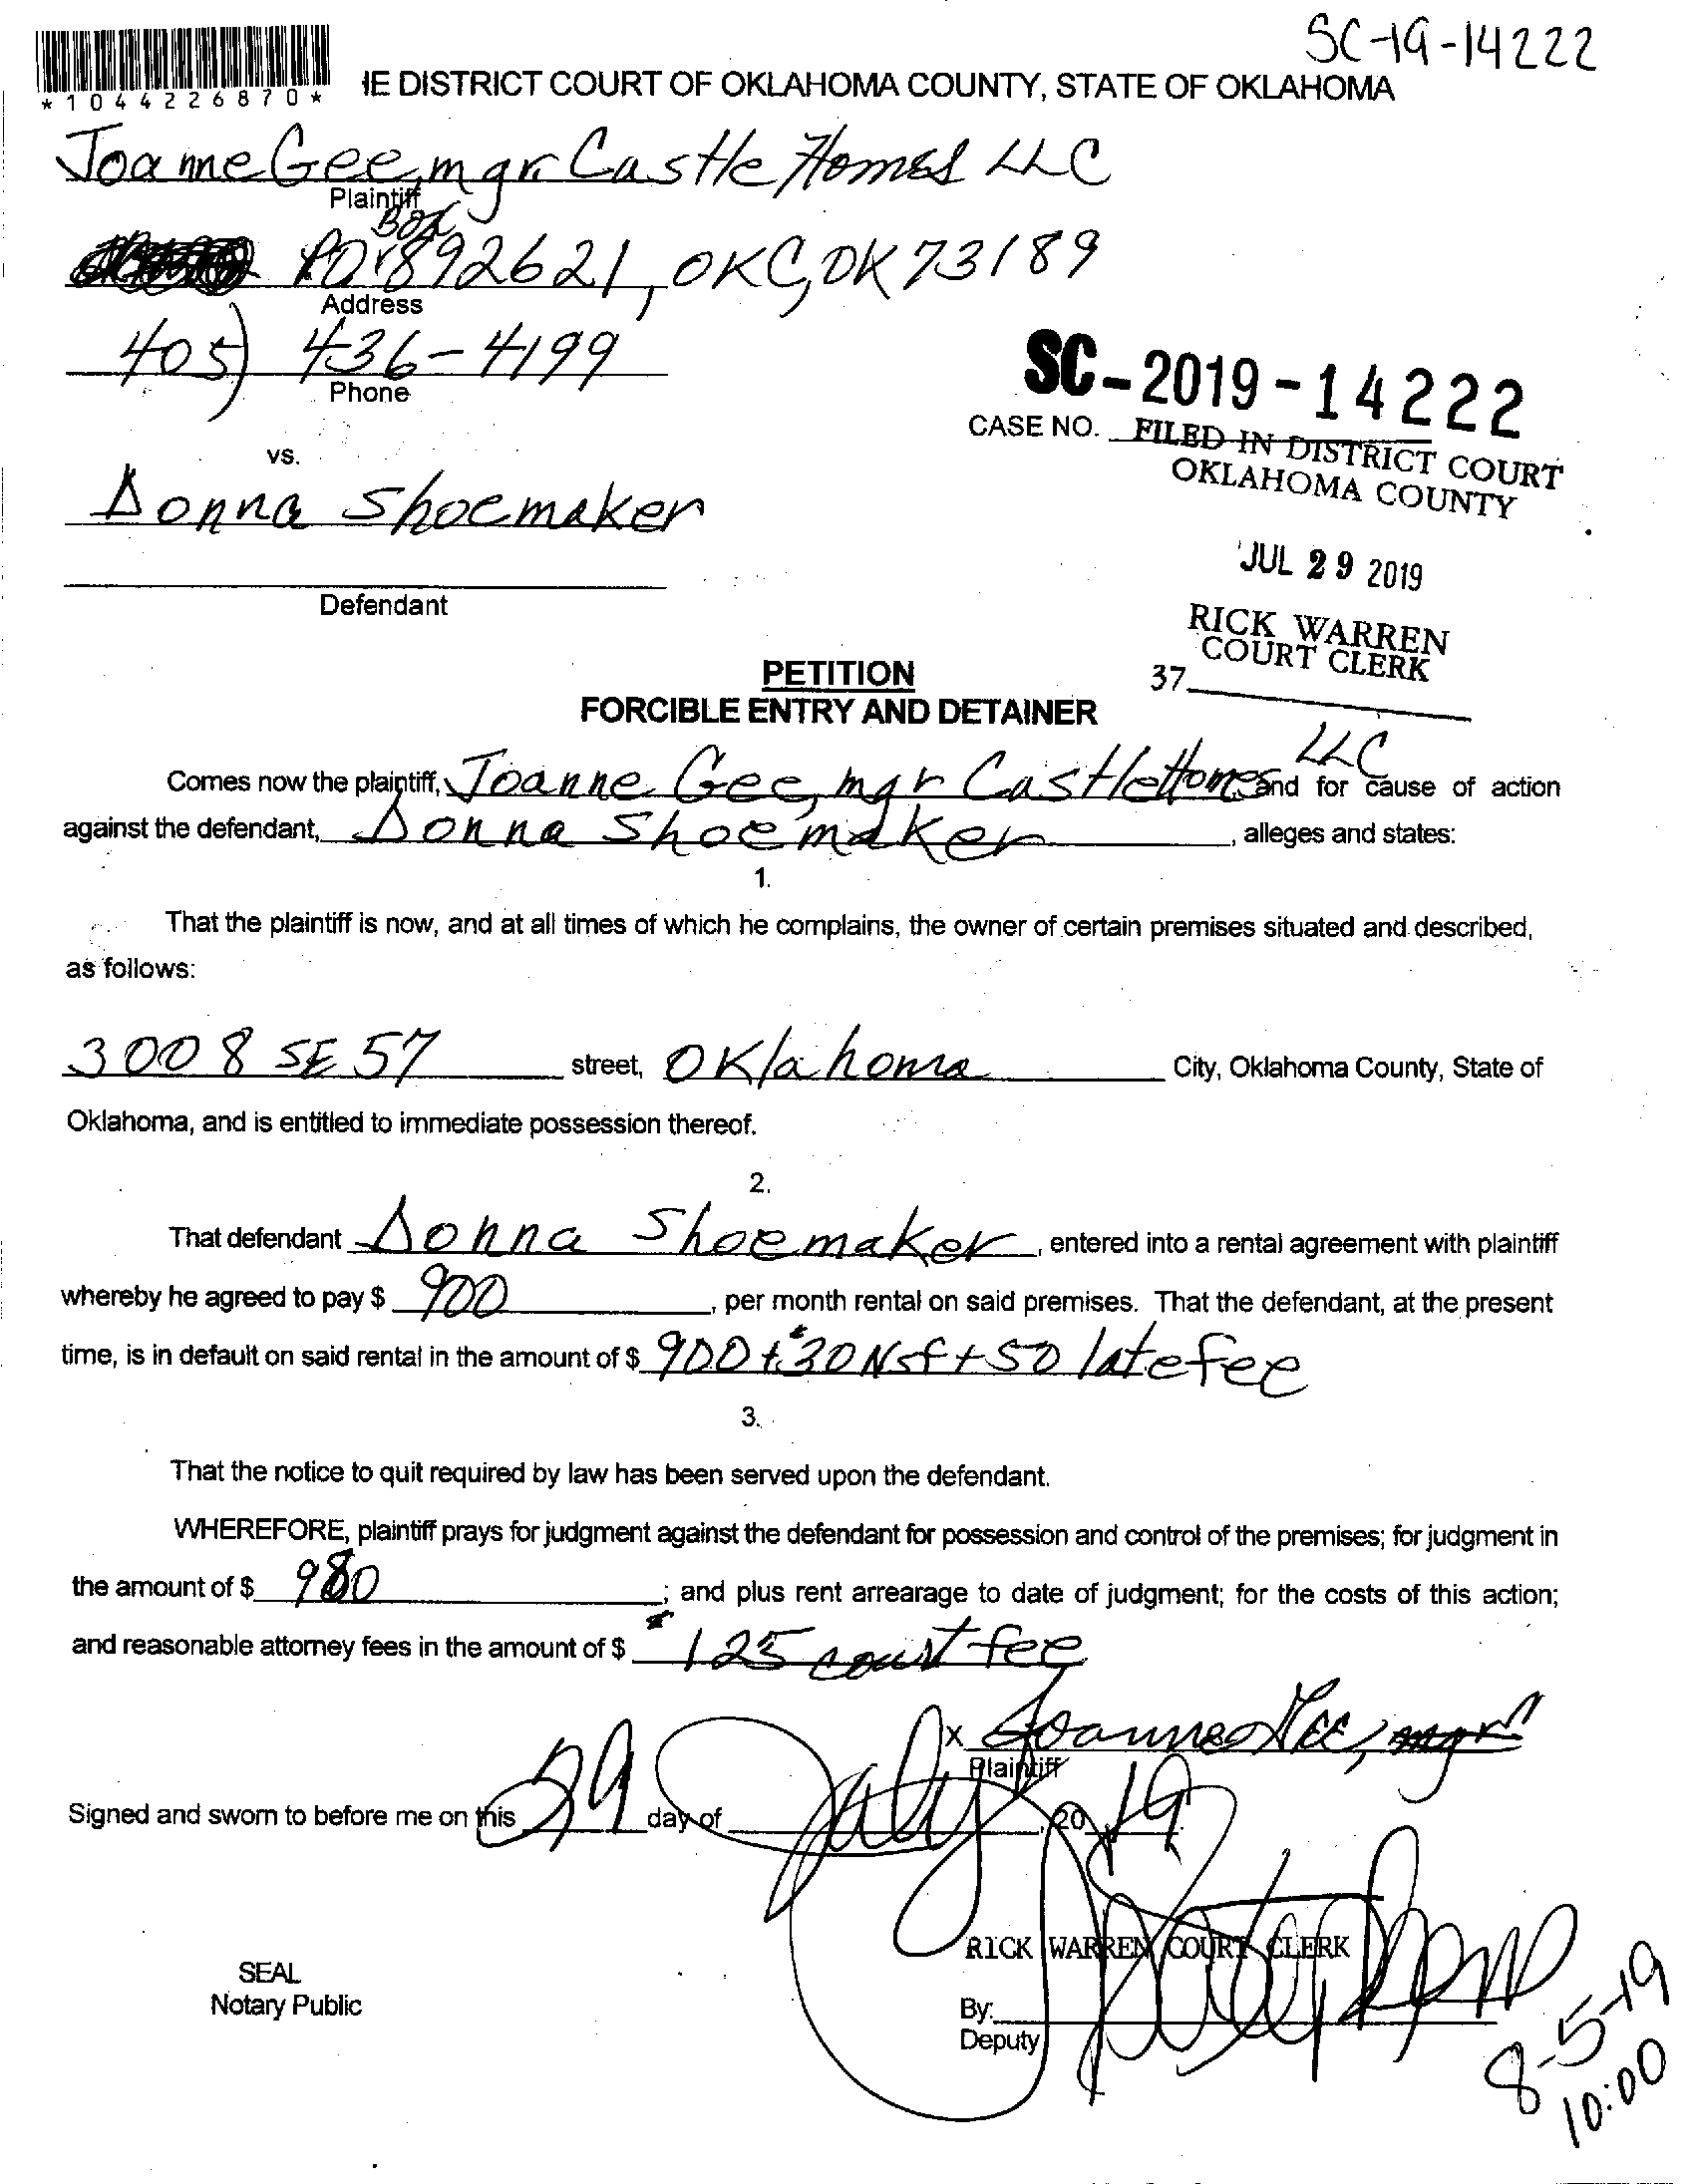 SC-19-14222
*1044226870*
IE DISTRICT COURT OF OKLAHOMA COUNTY, STATE OF OKLAHOMA
Joanne Gee, mgr Castle Homes LLC
Plaintiff
Box
PO 892621, OKC, OK 73189
Address
405) 436-4199
Phone
SC-2019-14222
CASE NO.
FILED IN DISTRICT COURT
OKLAHOMA COUNTY
vs.
Donna Shoemaker
JUL 29 2019
Defendant
RICK WARREN
COURT CLERK
37
PETITION
FORCIBLE ENTRY AND DETAINER
Comes now the plaintiff, Joanne Gee, mgr Castle Homes LLC and for cause of action
against the defendant, Donna Shoemaker, alleges and states:
1.
That the plaintiff is now, and at all times of which he complains, the owner of certain premises situated and described,
as follows:
3008 SE 57 street, Oklahoma City, Oklahoma County, State of
Oklahoma, and is entitled to immediate possession thereof.
2.
That defendant Donna Shoemaker, entered into a rental agreement with plaintiff
whereby he agreed to pay $ 900, per month rental on said premises. That the defendant, at the present
time, is in default on said rental in the amount of $ 900 + 30 NSF + 50 late fee
3.
That the notice to quit required by law has been served upon the defendant.
WHEREFORE, plaintiff prays for judgment against the defendant for possession and control of the premises; for judgment in
the amount of $ 980; and plus rent arrearage to date of judgment; for the costs of this action;
and reasonable attorney fees in the amount of $ 125 court fee
x Joanne Gee, mgr
Plaintiff
Signed and sworn to before me on this 29 day of July, 20 19.
RICK WARREN COURT CLERK
SEAL
Notary Public
By:
Deputy
8-5-19
10:00